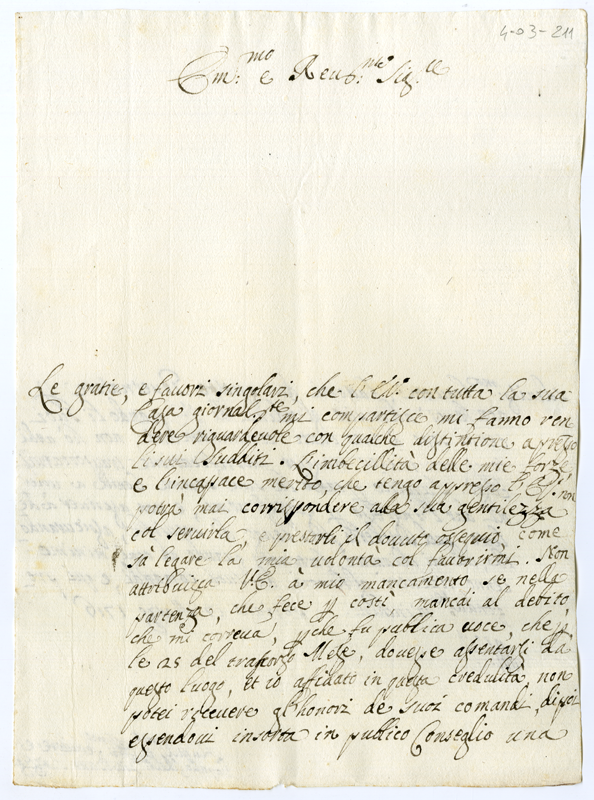 4-03-211
Em:mo e Reud:mo Sig:re
Le gratie, e fauori singolari, che l'E.V. con tutta la sua
Casa giornal.te mi compartisce mi fanno ren
dere riguardeuole con qualche distintione apresso
li sui Sudditi. L'imbecillità delle mie forze
e l'incapace merito, che tengo appresso non
potrà mai corrispondere alla sua gentilezza
col seruirla, e prestarli il douuto ossequio, come
sà legare la mia uolonta col fauorirmi. Non
attribuisca V.E. à mio mancamento se nella
partenza, che fece costì mancai al debito,
che mi correua, che fu publica uoce, che
le 25 del trascorso Mese, douesse assentarsi da
questo luogo, et io affidato in questa credulità, non
potei riceuere gl'honori de suoi comandi, dipoi
essendoui insorta in publico Conseglio una